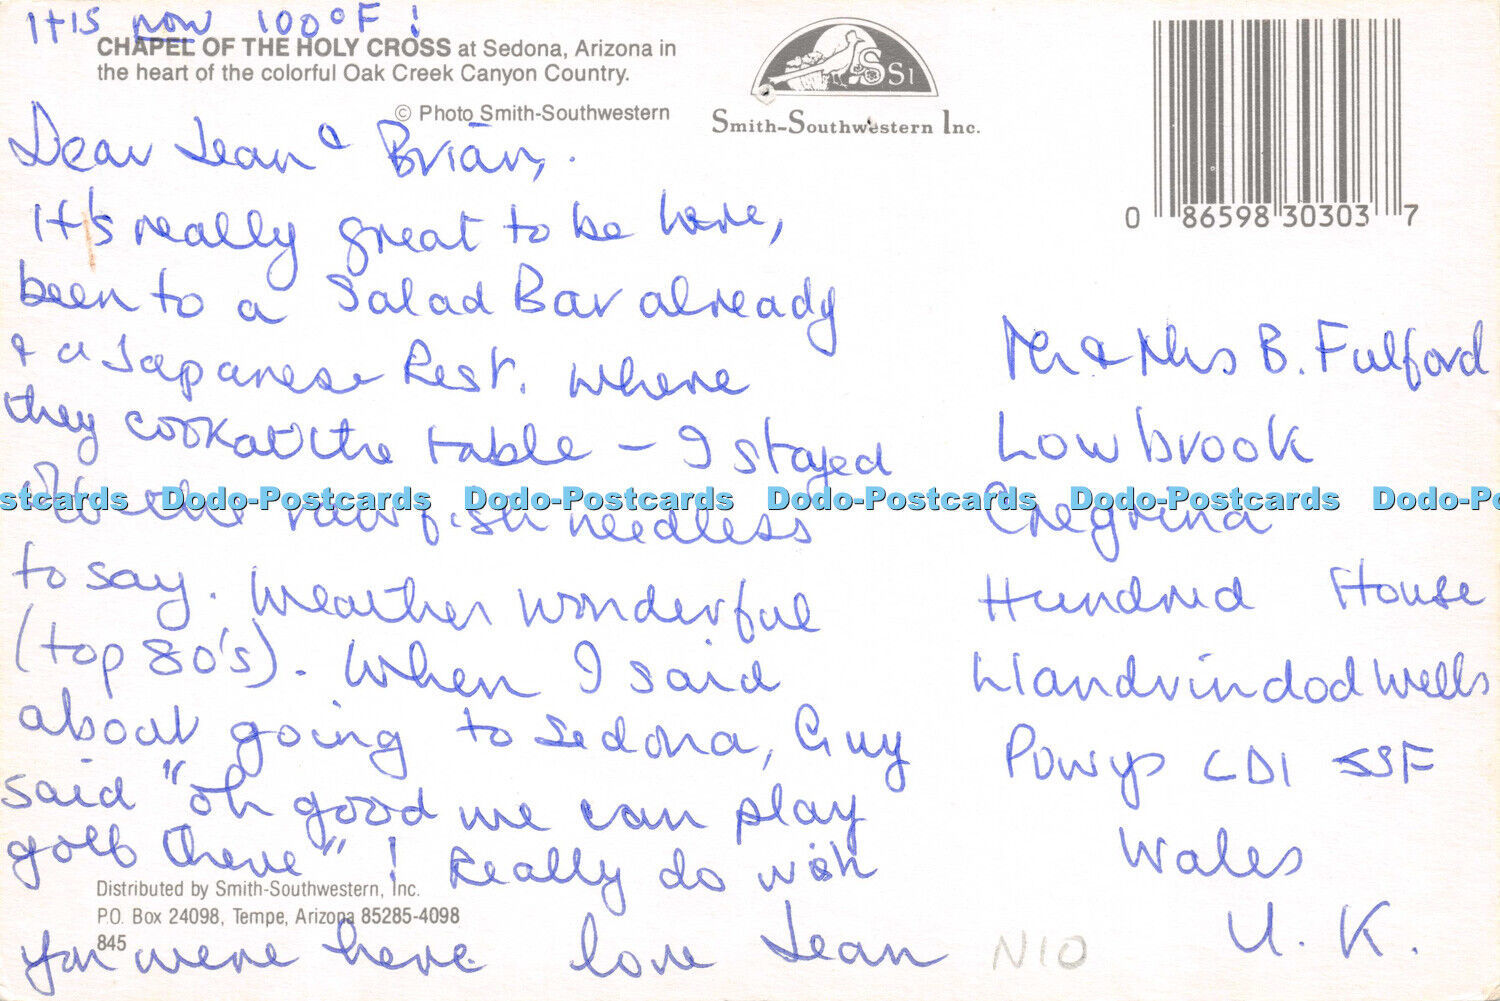 It is now 100°F !
CHAPEL OF THE HOLY CROSS at Sedona, Arizona in
the heart of the colorful Oak Creek Canyon Country.
© Photo Smith-Southwestern
SSI
Smith-Southwestern Inc.
0 86598 30303 7
Dear Jean & Brian,
It's really great to be here,
been to a Salad Bar already
& a Japanese Rest. where
they cook at the table – I stayed
the raw fish needless
to say. Weather wonderful
(top 80's). When I said
about going to Sedona, Guy
said "oh good we can play
golf there" ! Really do wish
you were here love Jean
Mr & Mrs B. Fulford
Lowbrook
Cregrina
Hundred House
Llandrindod Wells
Powys LD1 5SF
Wales
U. K.
Distributed by Smith-Southwestern, Inc.
P.O. Box 24098, Tempe, Arizona 85285-4098
845
N10
stcards Dodo-Postcards Dodo-Postcards Dodo-Postcards Dodo-Postcards Dodo-Po